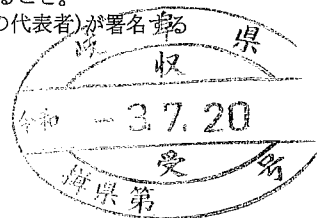 ること。
の代表者)が署名する
岐阜県
収
令和 - 3.7.20
受
障県第 号